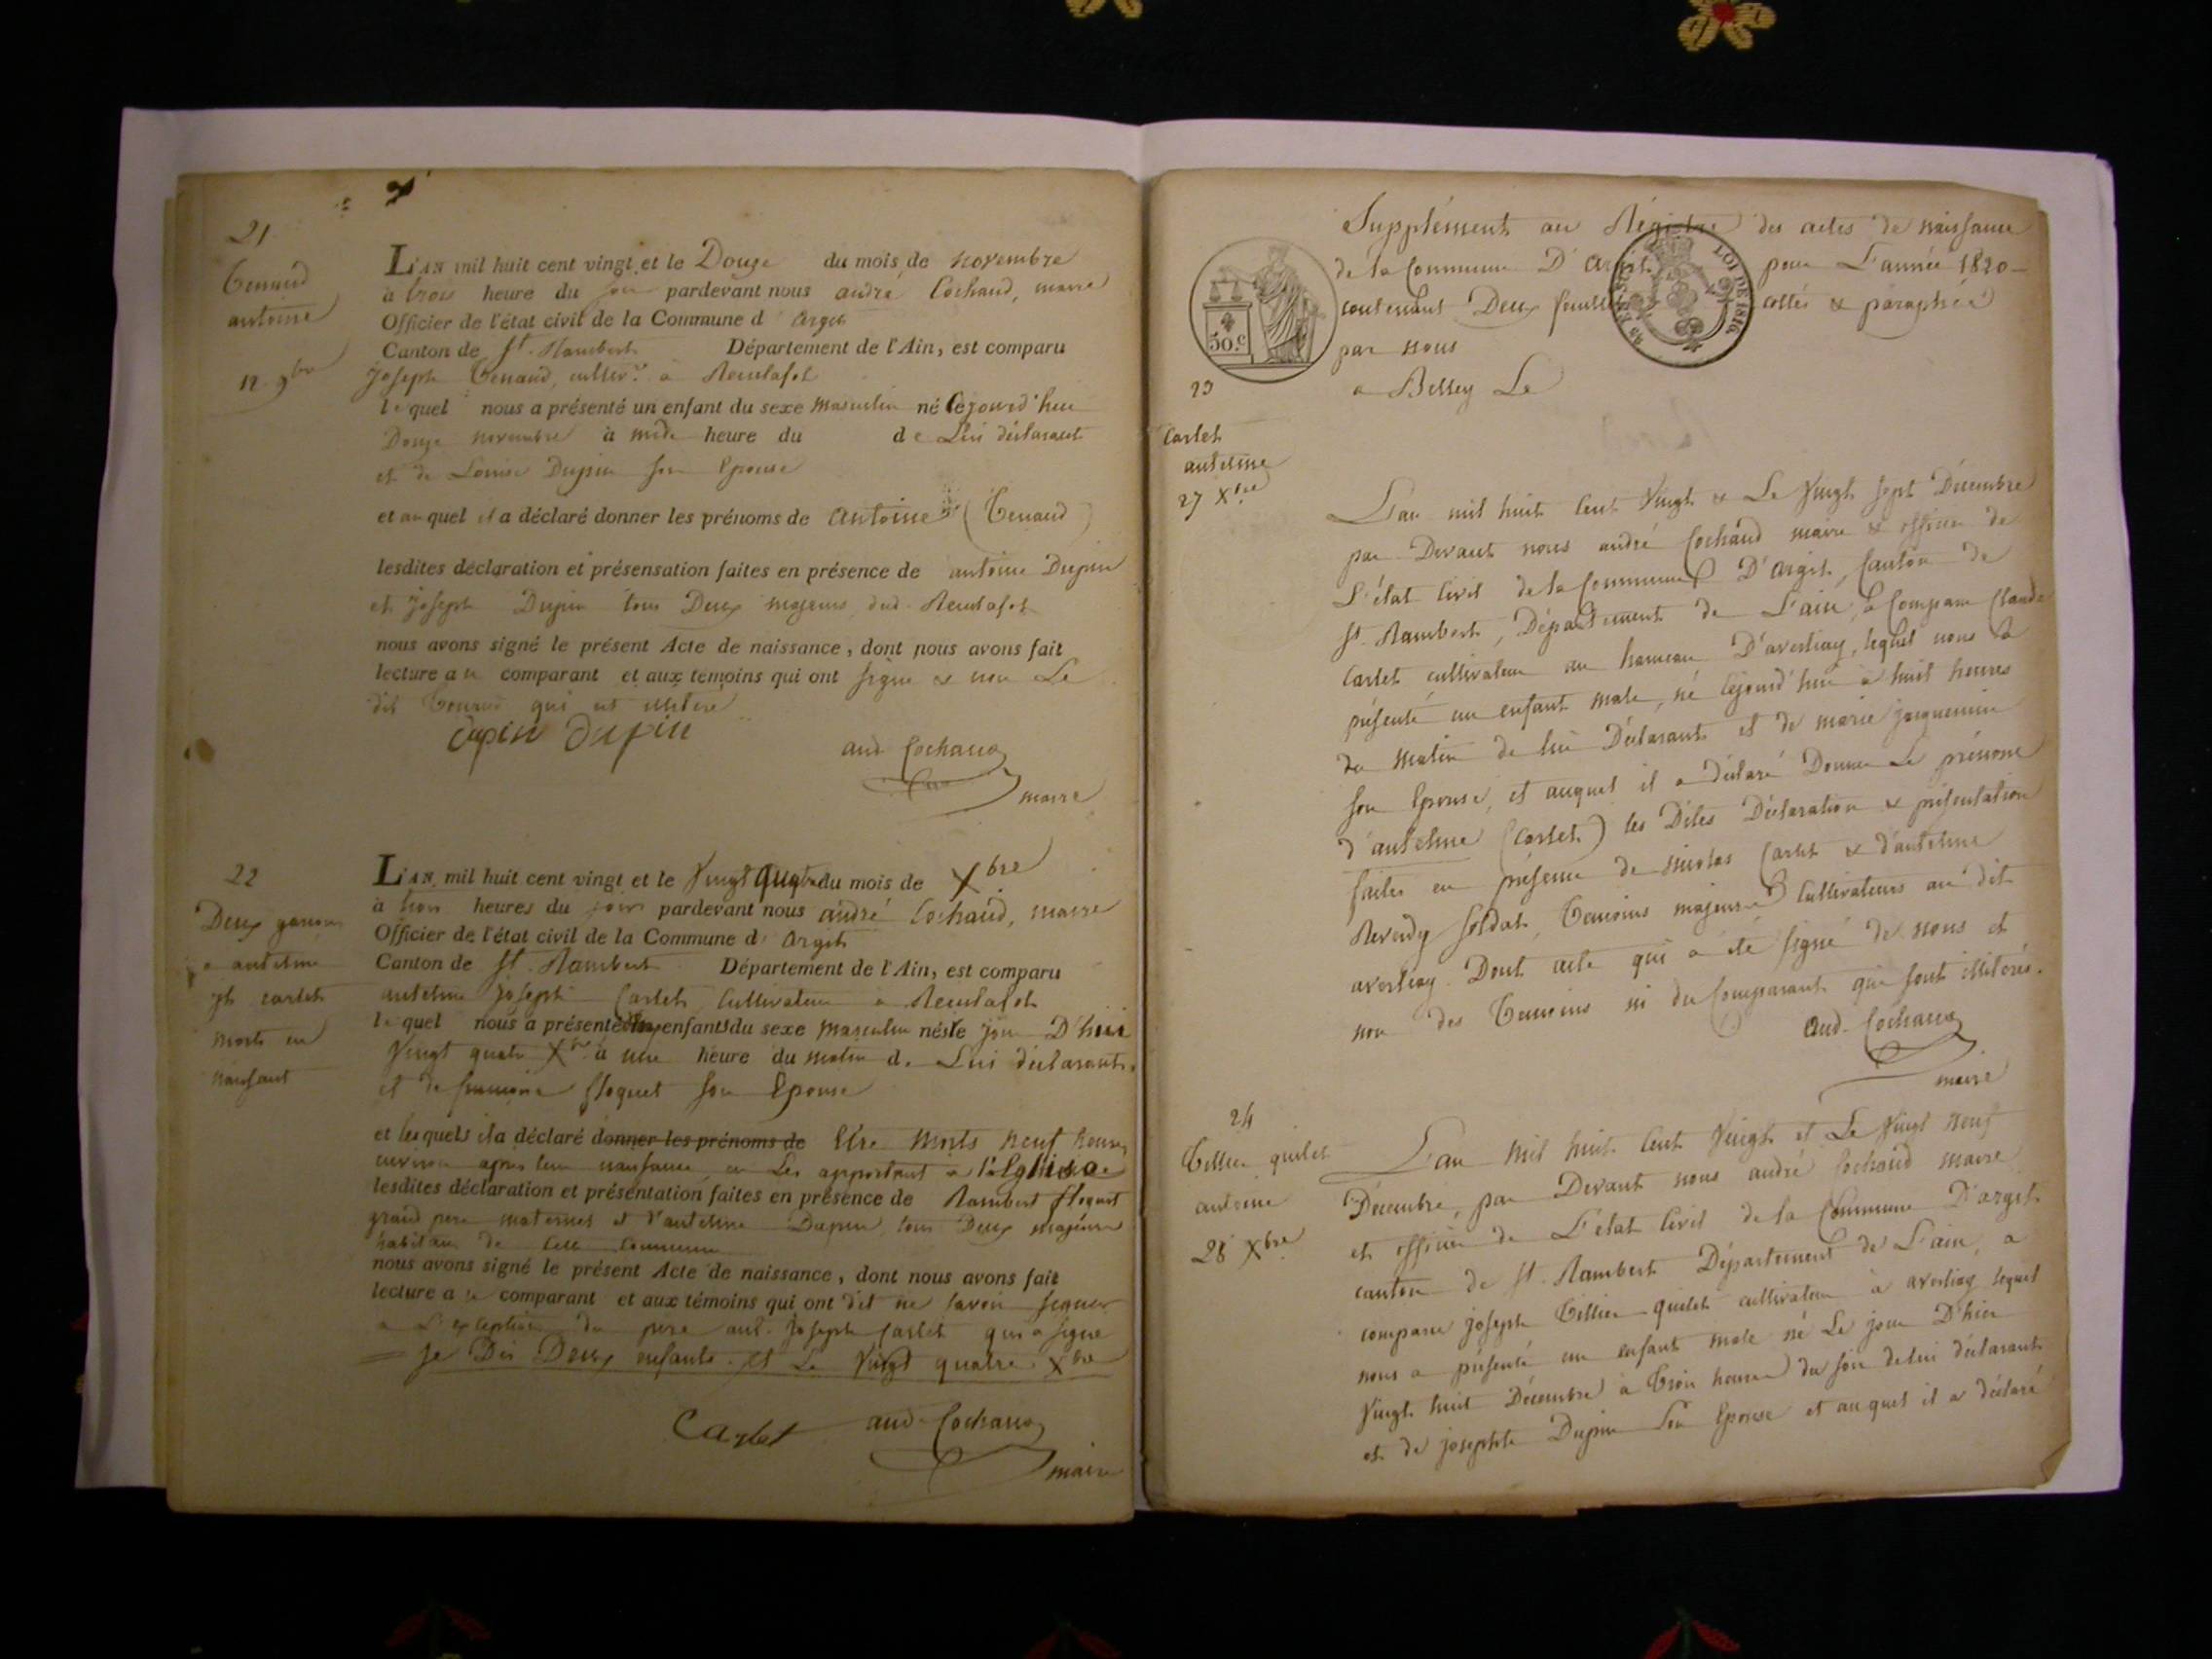 21
Tenaud
antoine
12 9bre
L'AN mil huit cent vingt et le Douze du mois de novembre
à trois heure du soir pardevant nous andré Cochaud, maire
Officier de l'état civil de la Commune d' argit
Canton de St. Rambert Département de l'Ain, est comparu
joseph Tenaud, cultivr. a
lequel nous a présenté un enfant du sexe masculin né Cejourd'hui
Douze novembre à midi heure du de Lui déclarant
et de Louise Dupin son Epouse
et auquel il a déclaré donner les prénoms de antoine (Tenaud)
lesdites déclaration et présensation faites en présence de antoine Dupin
et joseph Dupin tous Deux majeurs dud.
nous avons signé le présent Acte de naissance, dont nous avons fait
lecture au comparant et aux témoins qui ont signé & non Le
dit Tenaud qui est illitéré
dupin Dupin
and Cochaud
maire
22
Deux garçons
a antelme
jph carlet
morts en
naissant
L'AN mil huit cent vingt et le Vingt quatre du mois de Xbre
à trois heures du soir pardevant nous andré Cochaud, maire
Officier de l'état civil de la Commune d' argit
Canton de St. Rambert Département de l'Ain, est comparu
antelme joseph Carlet, Cultivateur a
lequel nous a présenté deux enfants du sexe masculin nés le jour D'hui
Vingt quatre Xbre à une heure du matin d. Lui déclarant
et de floquet son Epouse
et lesquels il a déclaré donner les prénoms de Etre morts neuf heures
environ après leur naissance, en Les apportant a l'Eglise
lesdites déclaration et présentation faites en présence de Rambert floquet
grand pere maternel et d'antelme Dupin, tous Deux majeurs
habitans de cette Commune
nous avons signé le présent Acte de naissance, dont nous avons fait
lecture au comparant et aux témoins qui ont dit ne savoir signer
a L'exception du pere ant. joseph Carlet qui a signé
Des Deux enfants. et Le Vingt quatre Xbre
Carlet and Cochaud
maire
Supplément au Régistre des actes de naissance
de la Commune D'Argit pour L'année 1820
contenant Deux feuilles cottés & paraphés
par nous
a Belley Le
50.c
LOI DE 1816.
23
Carlet
antelme
27 Xbre
L'an mil huit Cent Vingt & Le Vingt Sept Décembre
par Devant nous andré Cochaud maire & officier de
L'état Civil de la Commune D'Argit, Canton de
St. Rambert, Département de L'ain, a Comparu Claude
Carlet cultivateur au hameau D'averliay, lequel nous a
présenté un enfant male, né cejourd'hui a huit heures
du matin de lui Déclarant et de marie jacquemin
son Epouse, et auquel il a déclaré Donner Le prénom
d'antelme (Carlet) les Dites Déclaration & présentation
faites en présence de nicolas Carlet & d'antelme
Reverdy soldat, Temoins majeurs Cultivateurs au dit
averliay. Dont acte qui a été signé de nous et
non des Temoins ni du Comparant qui sont illiterés.
and. Cochaud
maire
24
Tillier quilet
antoine
28 Xbre
L'an mil huit Cent Vingt et Le Vingt neuf
Décembre, par Devant nous andré Cochaud maire
et officier de L'état Civil de la Commune D'argit
canton de St. Rambert Département de L'ain, a
comparu joseph Tillier-quilet cultivateur à averliay lequel
nous a présenté un enfant male né Le jour D'hier
Vingt huit Décembre à Trois heures du soir de lui déclarant
et de josephte Dupin son Epouse et auquel il a déclaré